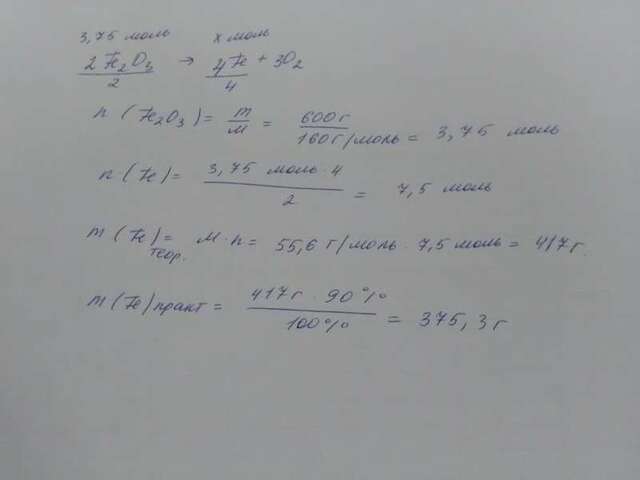 3,75 моль x моль
2Fe2O3 → 4Fe + 3O2
2 4
n (Fe2O3) = m/M = 600г/160г/моль = 3,75 моль
n (Fe) = 3,75 моль · 4 / 2 = 7,5 моль
m (Fe) теор. = M · n = 55,6 г/моль · 7,5 моль = 417 г.
m (Fe) практ = 417 г · 90 % / 100 % = 375,3 г